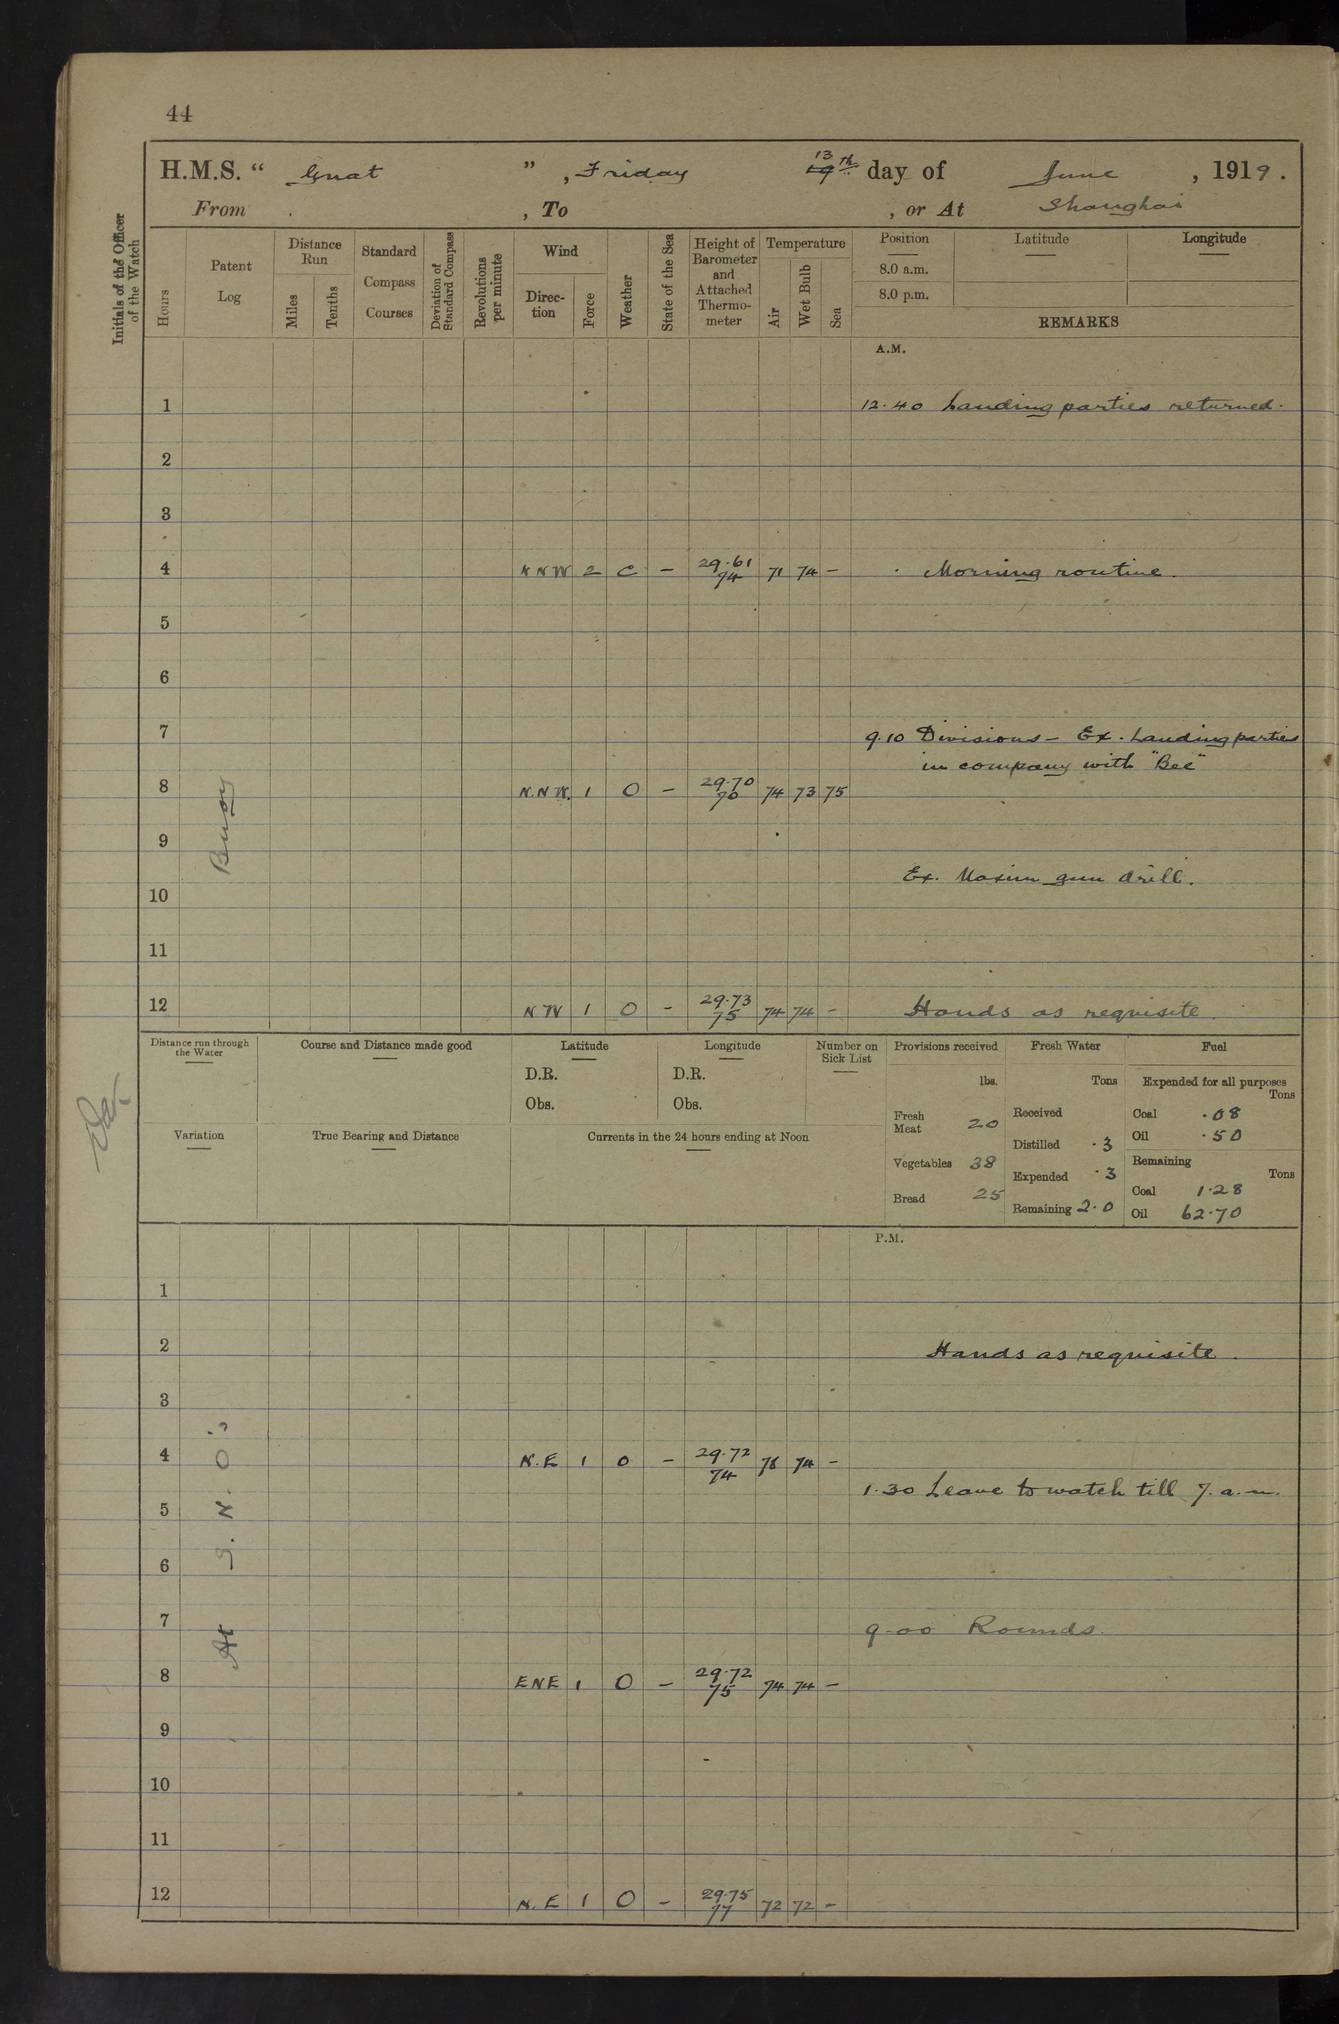 44
H.M.S. “ Gnat ” , Friday 13 19th day of June , 1919 .
From , To , or At Shanghai
Initials of the Officer of the Watch
Hours
Patent Log
Distance Run
Miles
Tenths
Standard Compass Courses
Deviation of Standard Compass
Revolutions per minute
Wind
Direc-tion
Force
Weather
State of the Sea
Height of Barometer and Attached Thermo-meter
Temperature
Air
Wet Bulb
Sea
Position Latitude Longitude
8.0 a.m.
8.0 p.m.
REMARKS
A.M.
1 12.40 Landing parties returned.
2
3
4 NNW 2 C - 29.61 74 71 74 - Morning routine.
5
6
7 9.10 Divisions - Ex. Landing parties
in company with "Bee"
8 N.N.W. 1 O - 29.70 70 74 73 75
9
Ex. Maxim gun drill.
10
11
12 NW 1 O - 29.73 75 74 74 - Hands as requisite.
Buoy
Distance run through the Water
Course and Distance made good
Latitude
D.R.
Obs.
Longitude
D.R.
Obs.
Number on Sick List
Variation
True Bearing and Distance
Currents in the 24 hours ending at Noon
Provisions received
lbs.
Fresh Meat 20
Vegetables 38
Bread 25
Fresh Water
Tons
Received
Distilled .3
Expended .3
Remaining 2.0
Fuel
Expended for all purposes
Tons
Coal .08
Oil .50
Remaining
Tons
Coal 1.28
Oil 62.70
P.M.
1
2 Hands as requisite.
3
4 N.E 1 O - 29.72 74 76 74 -
1.30 Leave to watch till 7.a.m.
5
6
7 9.00 Rounds.
8 ENE 1 O - 29.72 75 74 74 -
9
10
11
12 N.E 1 O - 29.75 77 72 72 -
At S.N.O's